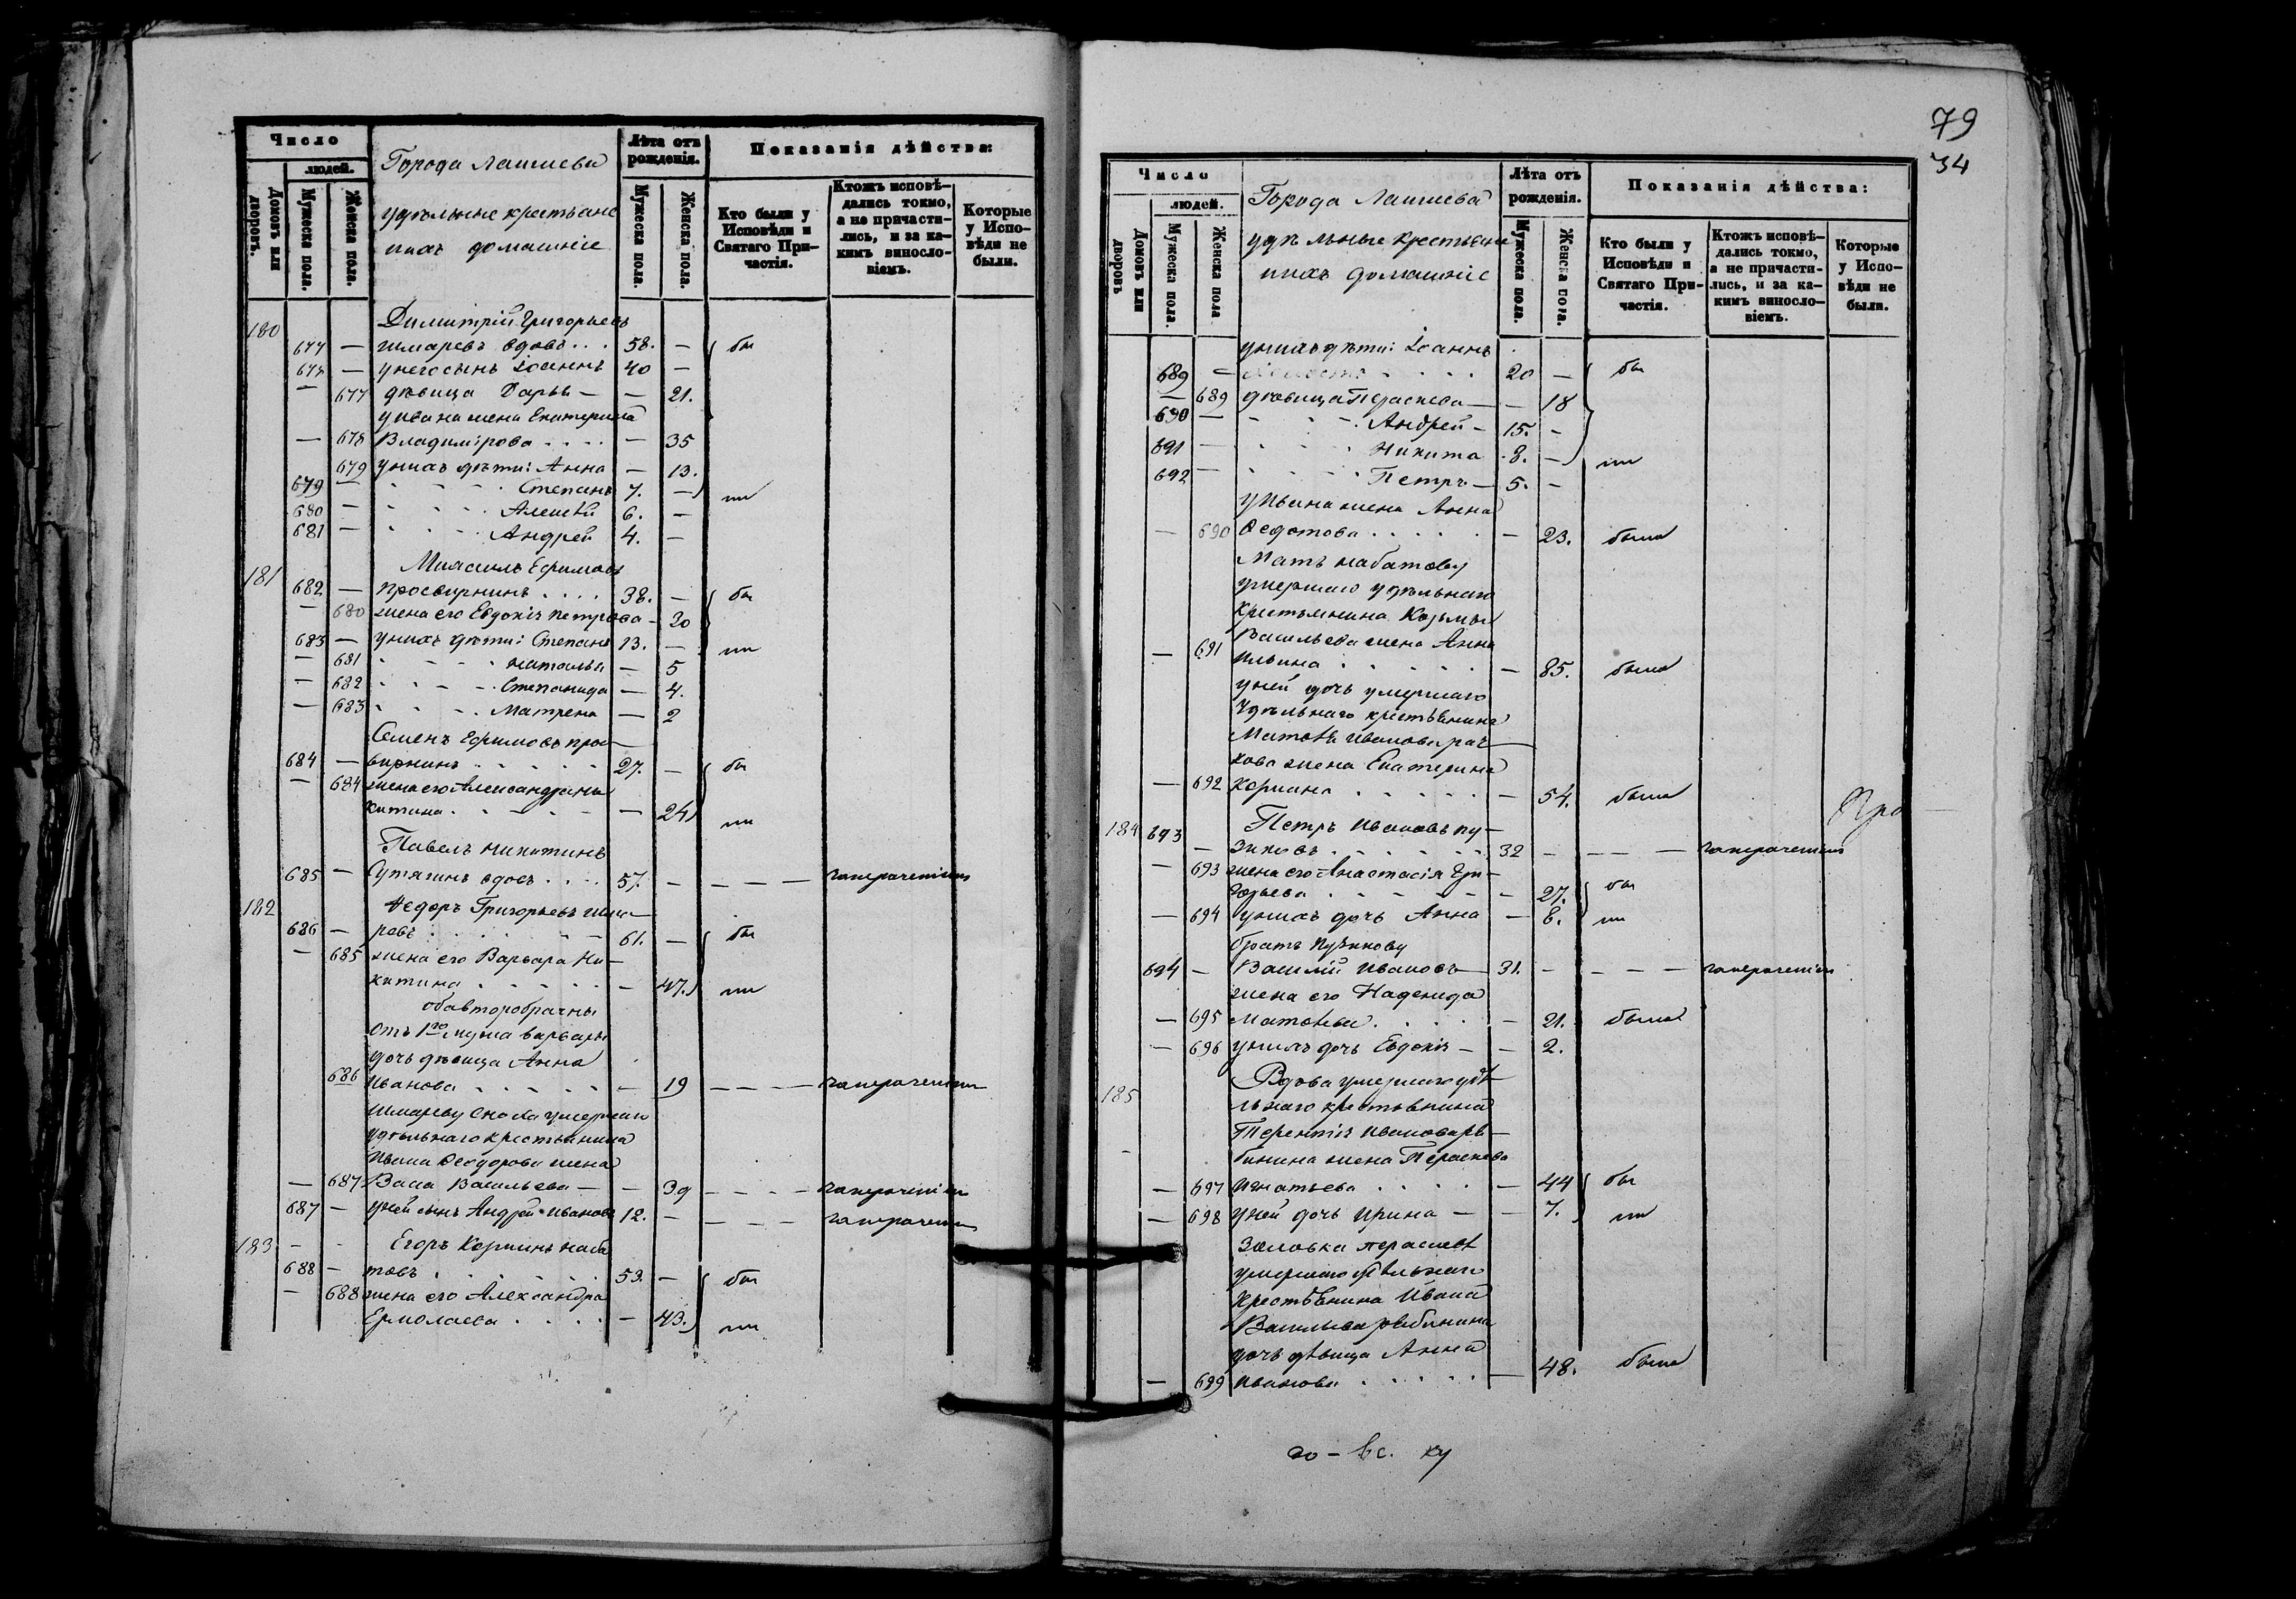 Число
людей.
Домовъ или дворовъ.
Мужеска пола.
Женска пола.
Города Лаишева
удѣльные крестьяне
и ихъ домашніе
Лѣта отъ рожденія.
Мужеска пола.
Женска пола.
Показанія дѣйства:
Кто были у Исповѣди и Святаго Причастія.
Ктожъ исповѣ-
дались токмо,
а не причасти-
лись, и за ка-
кимъ винословіемъ.
Которые
у Испо-
вѣди не
были.
180 Димитрій Григорьевъ
677 — Шмаревъ вдовъ . . . 58. — бы
678 — у него сынъ Іоаннъ 40 —
— 677 дѣвица Дарья — — 21.
у Ивана жена Екатерина
— 678 Владимірова . . . . — 35
679 у нихъ дѣти: Анна — 13.
679 — Степанъ 7. — ли
680 — Алексѣй 6. —
681 — Андрей 4. —
181 Ефимовъ
682 — Просвирнинъ . . . . 38. — бы
— 680 жена его Евдокія Петрова — 30
683 — у нихъ дѣти: Степанъ 13. — ли
— 681 Наталья — 5
— 682 Степанида — 4.
— 683 Матрена — 2
Семенъ Ефимовъ прос-
684 — вирнинъ . . . . . 27. — бы
— 684 жена его Александра Ни-
китина . . . . . — 24 ли
Павелъ Никитинъ
685 — Сутягинъ вдовъ . . . . 57. — — — —
182 Федоръ Григорьевъ Шма-
686 — ревъ . . . . . . 61. — бы
— 685 жена его Варвара Ни-
китина . . . . . — 47. ли
оба второбрачны
Отъ 1го мужа Варвары
дочь дѣвица Анна
686 Иванова . . . . . — 19 — — —
Шмареву сноха умершаго
удѣльнаго крестьянина
Ивана Феодорова жена
— 687 Васса Васильева — — 39 — — —
687 — у ней сынъ Андрей Ивановъ 12. — — — —
183 — - Егоръ Козминъ Наба
688 — товъ . . . . . . 53. — бы
— 688 жена его Александра
Ермолаева . . . . — 43. ли
79
34
Число
людей.
Домовъ или дворовъ
Мужеска пола.
Женска пола
Города Лаишева
удѣльные крестьяне
и ихъ домашніе
Лѣта отъ
рожденія.
Мужеска пола.
Женска пола.
Показанія дѣйства:
Кто были у
Исповѣди и
Святаго При-
частія.
Ктожъ исповѣ-
дались токмо,
а не причасти-
лись, и за ка-
кимъ винословіемъ.
Которые
у Испо-
вѣди не
были.
у нихъ дѣти: Іоаннъ
689 — . . . . 20 — бы
— 689 дѣвица Параскева — — 18
690 — Андрей — 15. —
691 — Никита 8. — ли
692 — Петръ — 5. —
у Ивана жена Анна
— 690 Федотова . . . . . — 23. была
Мать Набатову
умершаго удѣльнаго
крестьянина Козмы
Васильева жена Анна
— 691 Ильина . . . . . — 85. была
у ней дочь умершаго
Удѣльнаго крестьянина
Матвѣя Иванова
кова жена Екатерина
— 692 Козмина . . . . . — 54. была
Про
184 693 Петръ Ивановъ Пу-
— зиковъ . . . . . . 32 — — — —
— 693 жена его Анастасія Гри-
горьева . . . . . — 27. бы
— 694 у нихъ дочь Анна — 8. ли
братъ Пузикову
694 — Василій Ивановъ — 31. — — — —
жена его Надежда
— 695 Матвѣева . . . . — 21. была
— 696 у нихъ дочь Евдокія — — 2.
185 Вдова умершаго удѣ
льнаго крестьянина
Терентія Иванова Ря-
бинина жена Параскева
— 697 Игнатьева . . . . — 44 бы
— 698 у ней дочь Ирина — — 7. ли
Золовка Параскевѣ
умершаго удѣльнаго
крестьянина Ивана
Васильева Рябинина
дочь дѣвица Анна
— 699 Иванова . . . . . — 48. была